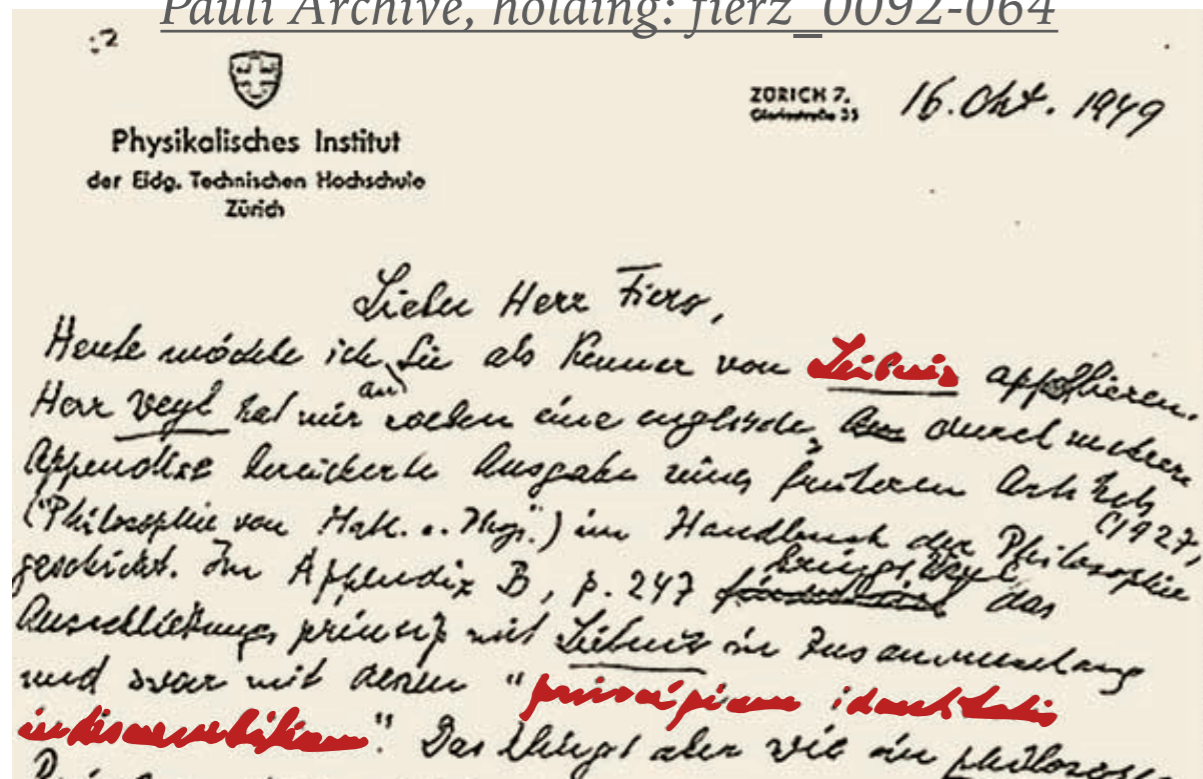 Pauli Archive, holding: fierz_0092-064
:2
Physikalisches Institut
der Eidg. Technischen Hochschule
Zürich
ZÜRICH 7.
Gloriastraße 35
16. Okt. 1949
Lieber Herr Fierz,
Heute möchte ich Sie als Kenner von Leibniz appellieren.
Herr Weyl hat mir soeben eine englische, durch mehrere
Appendices bereicherte Ausgabe eines früheren Artikels
("Philosophie von Math. u. Phys.") im Handbuch der Philosophie (1927)
geschickt. Im Appendix B, p. 247 bringt Weyl das
Ausschließungsprinzip mit Leibniz in Zusammenhang
und zwar mit dessen "principium identitatis
indiscernibilium". Das klingt aber wie ein